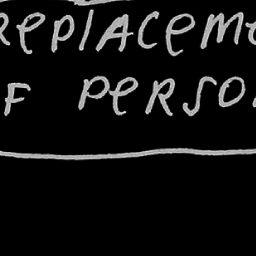 replaceme
f perso